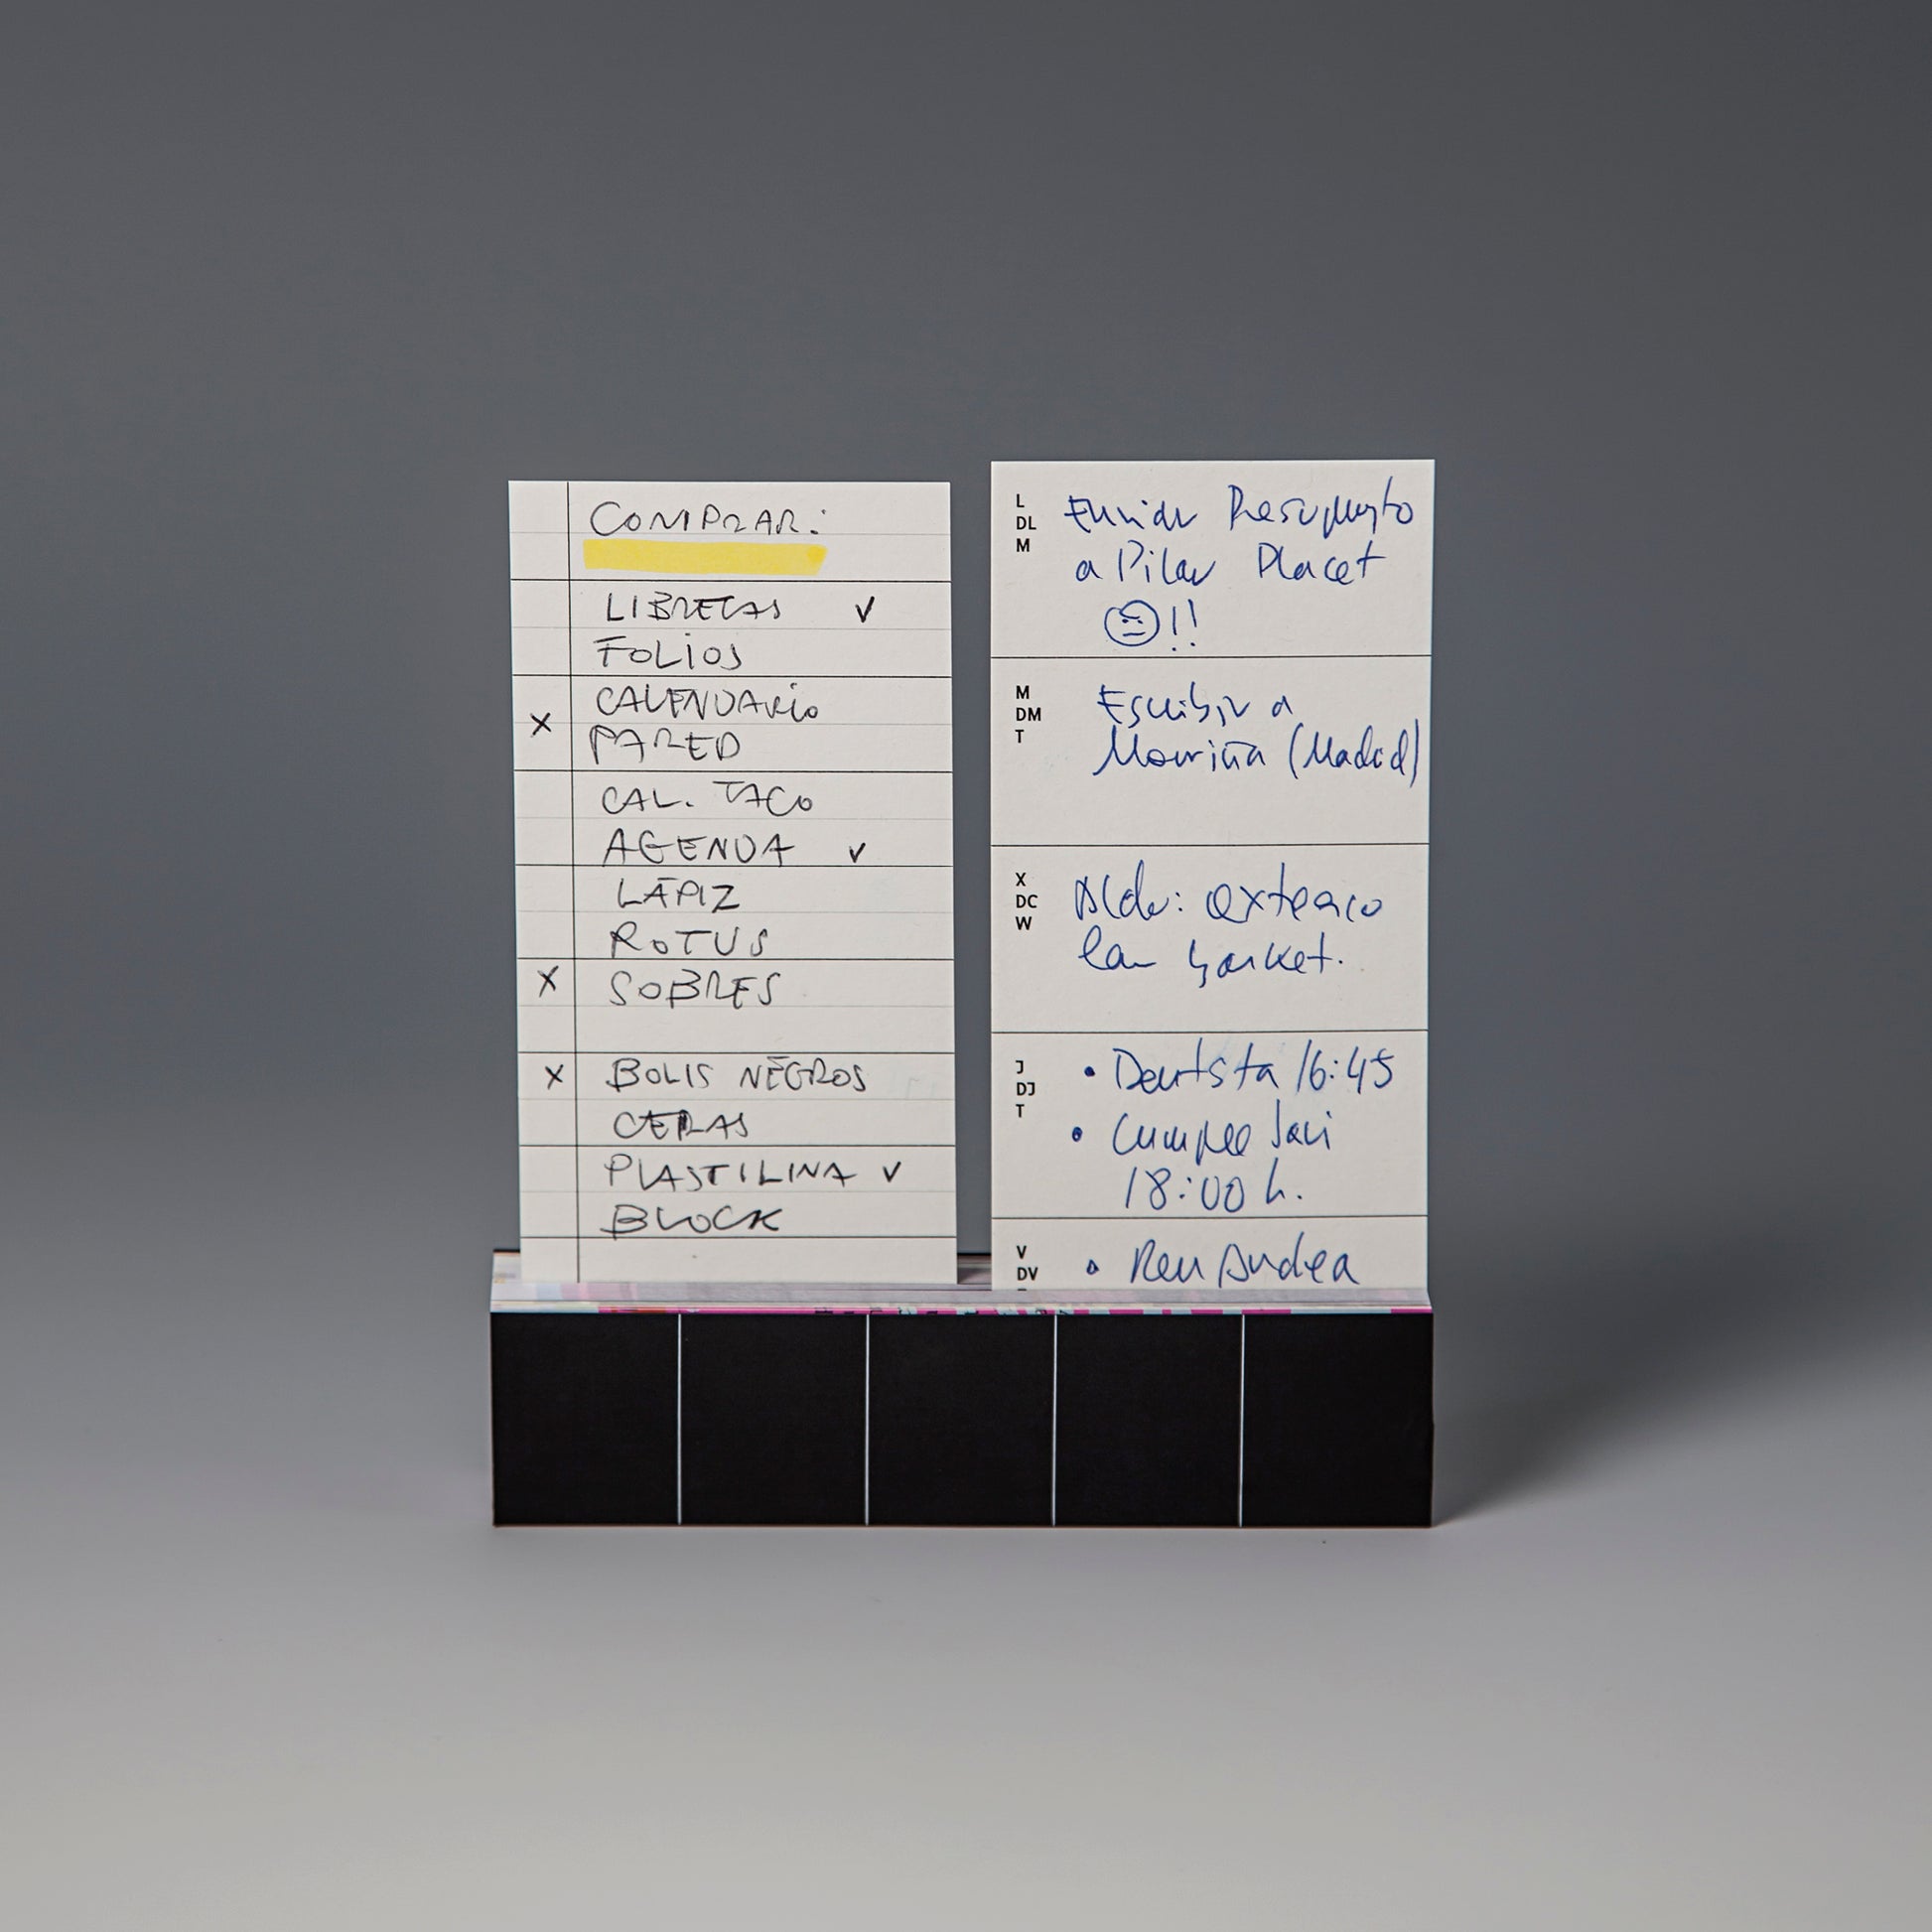 COMPRAR:
LIBRETAS ✓
FOLIOS
CALENDARIO
X
PARED
CAL. TACO
AGENDA ✓
LÁPIZ
ROTUS
X SOBRES
X BOLIS NEGROS
CERAS
PLASTILINA ✓
BLOCK
L
DL
M
Enviar Presupuesto
a Pilar Placet
!!
M
DM
T
Escribir a
Mouriña (Madrid)
X
DC
W
J
DJ
T
• Dentista 16:45
• Cumple Javi
18:00 h.
V
DV
• Reu Andrea